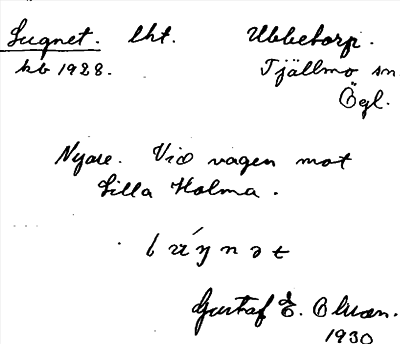 Lugnet. lht. Ubbetorp.
kb 1928. Tjällmo sn
Ögl.
Nyare. Vid vägen mot
Lilla Holma.
Gustaf E.
1930